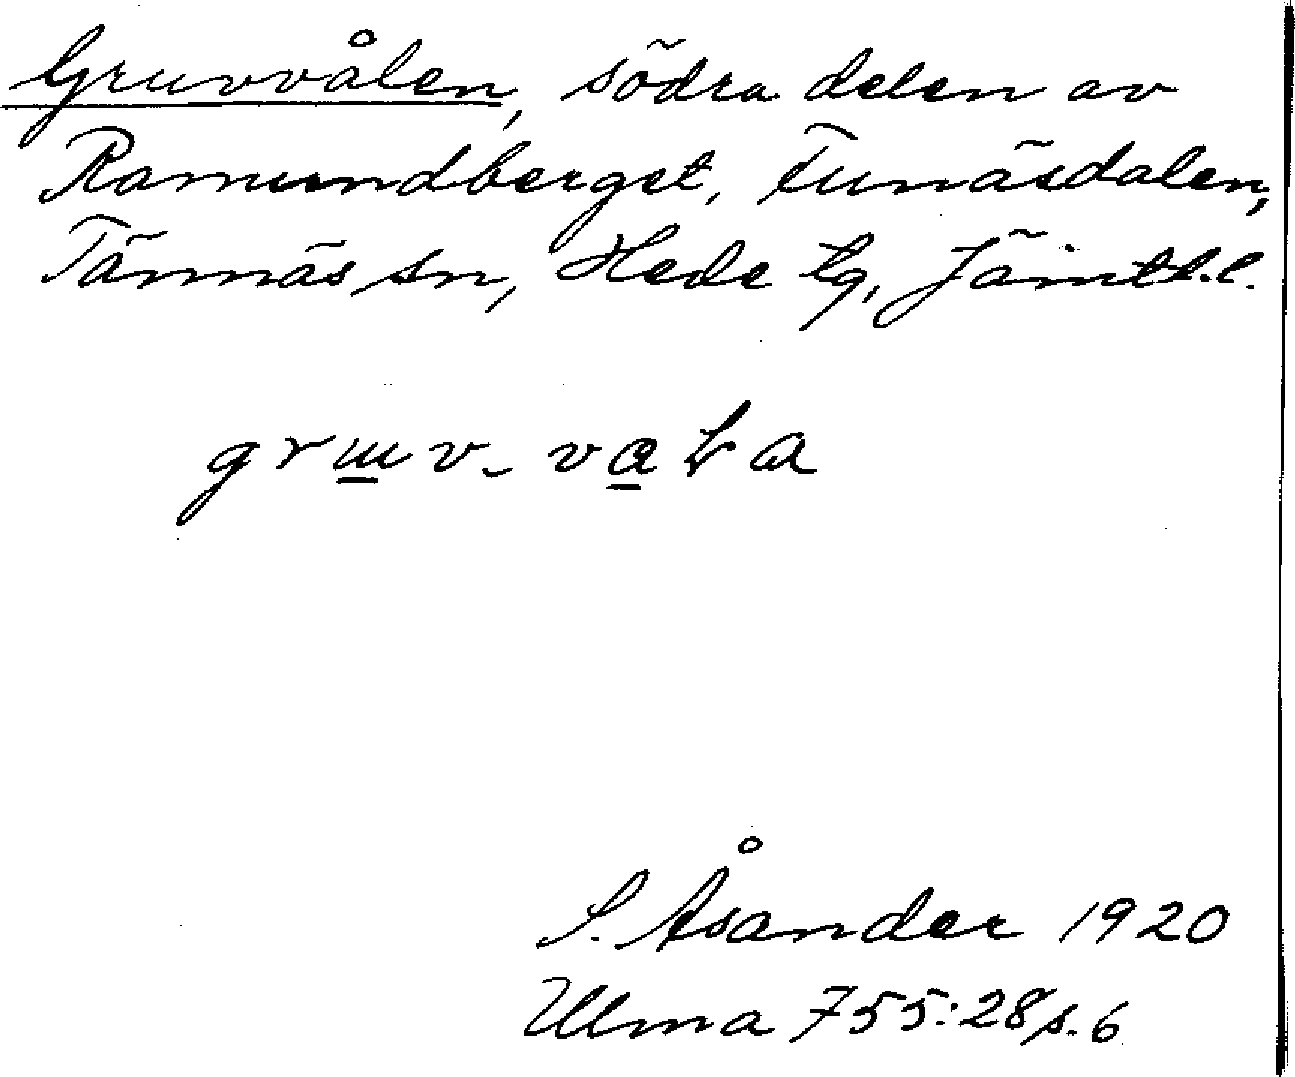 Gruvvålen, södra delen av
Ramundberget, Funäsdalen,
Tännäs sn, Hede tg, Jämtl.l.
S. Åsander 1920
Ulma 755:28 s. 6